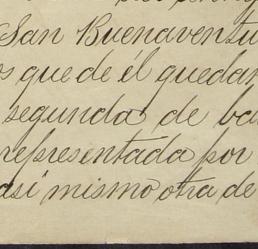 San Buenaventu
os que de él quedan
segunda de ba
representada por
asi mismo otra de